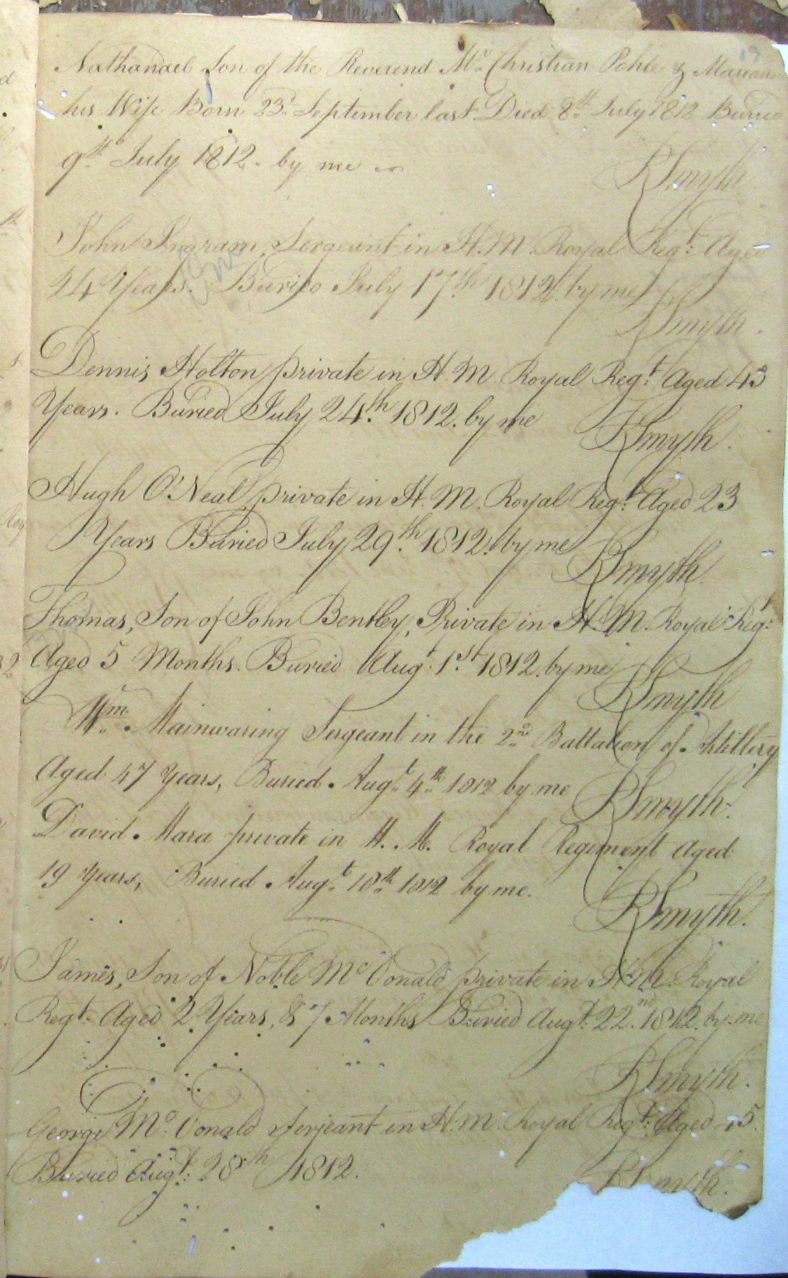 Nathanael Son of the Reverend Mr. Christian Pohle & Mariana
his Wife Born 23d September last Died 8th July 1812 Buried
9th July 1812 by me
RSmyth
John Ingram Sergeant in H.M. Royal Regt. Aged
24 Years. Buried July 17th 1812 by me
RSmyth.
Dennis Holton private in H.M. Royal Regt. Aged 43
Years. Buried July 24th 1812. by me
RSmyth.
Hugh O'Neal, private in H.M. Royal Regt. Aged 23
Years Buried July 29th 1812. by me
RSmyth.
Thomas, Son of John Bentley, Private in H.M. Royal Regt.
Aged 5 Months. Buried Augt. 1st 1812. by me
RSmyth
Wm. Mainwaring Sergeant in the 2nd Battalion of Artillery
Aged 47 Years, Buried Augt. 4th 1812 by me
RSmyth.
David Mara private in H.M. Royal Regiment aged
19 years, Buried Augt. 10th 1812 by me.
RSmyth.
James, Son of Noble McDonald, private in H.M. Royal
Regt. Aged 2 Years, & 7 Months Buried Augt. 22nd 1812. by me
RSmyth.
George McDonald Serjeant in H.m. Royal Regt. Aged
Buried Augt. 28th 1812.
RSmyth.